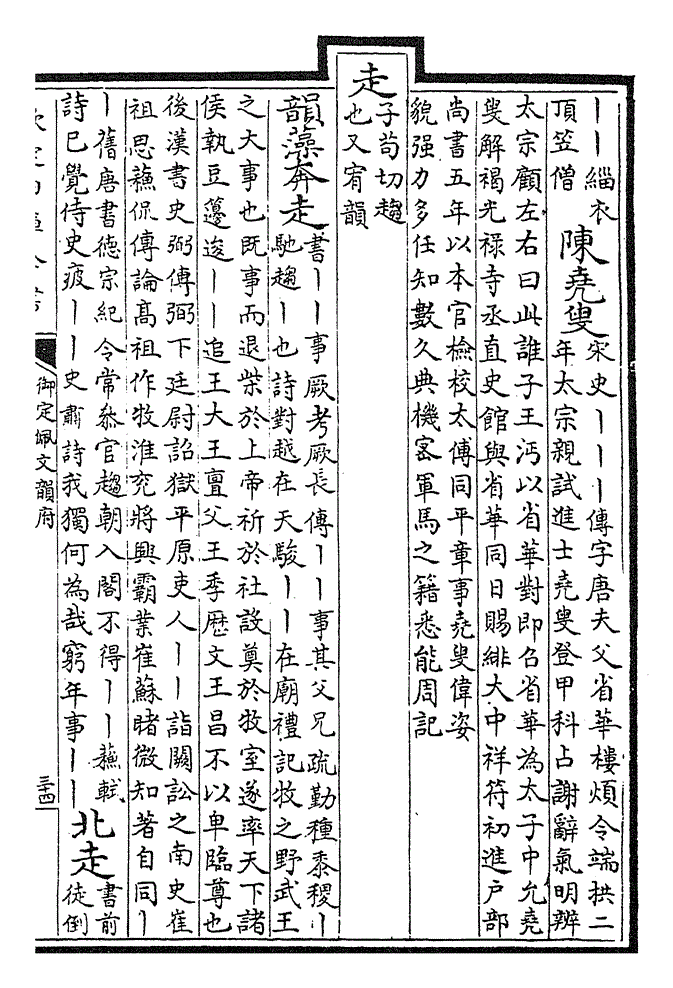 丨丨緇衣
頂笠僧
陳堯叟
宋史丨丨丨傳字唐夫父省華樓煩令端拱二
年太宗親試進士堯叟登甲科占謝辭氣明辨
太宗顧左右曰此誰子王沔以省華對即召省華為太子中允堯
叟解褐光祿寺丞直史館與省華同日賜緋大中祥符初進戶部
尚書五年以本官檢校太傅同平章事堯叟偉姿
貌强力多任知數久典機密軍馬之籍悉能周記
走
子茍切趨
也又宥韻
韻藻奔走
書丨丨事厥考厥長傳丨丨事其父兄疏勤種黍稷丨
馳趨丨也詩對越在天駿丨丨在廟禮記牧之野武王
之大事也既事而退柴於上帝祈於社設奠於牧室遂率天下諸
侯執豆籩逡丨丨追王大王亶父王季歴文王昌不以卑臨尊也
後漢書史弼傳弼下廷尉詔獄平原吏人丨丨詣闕訟之南史崔
祖思蘓侃傳論髙祖作牧淮兖將興霸業崔蘇睹微知著自同丨
丨舊唐書德宗紀令常叅官趨朝入閤不得丨丨蘓軾
詩已覺侍史疲丨丨史肅詩我獨何為哉窮年事丨丨
北走
書前
徒倒
欽定四庫全書
御定佩文韻府
三十四